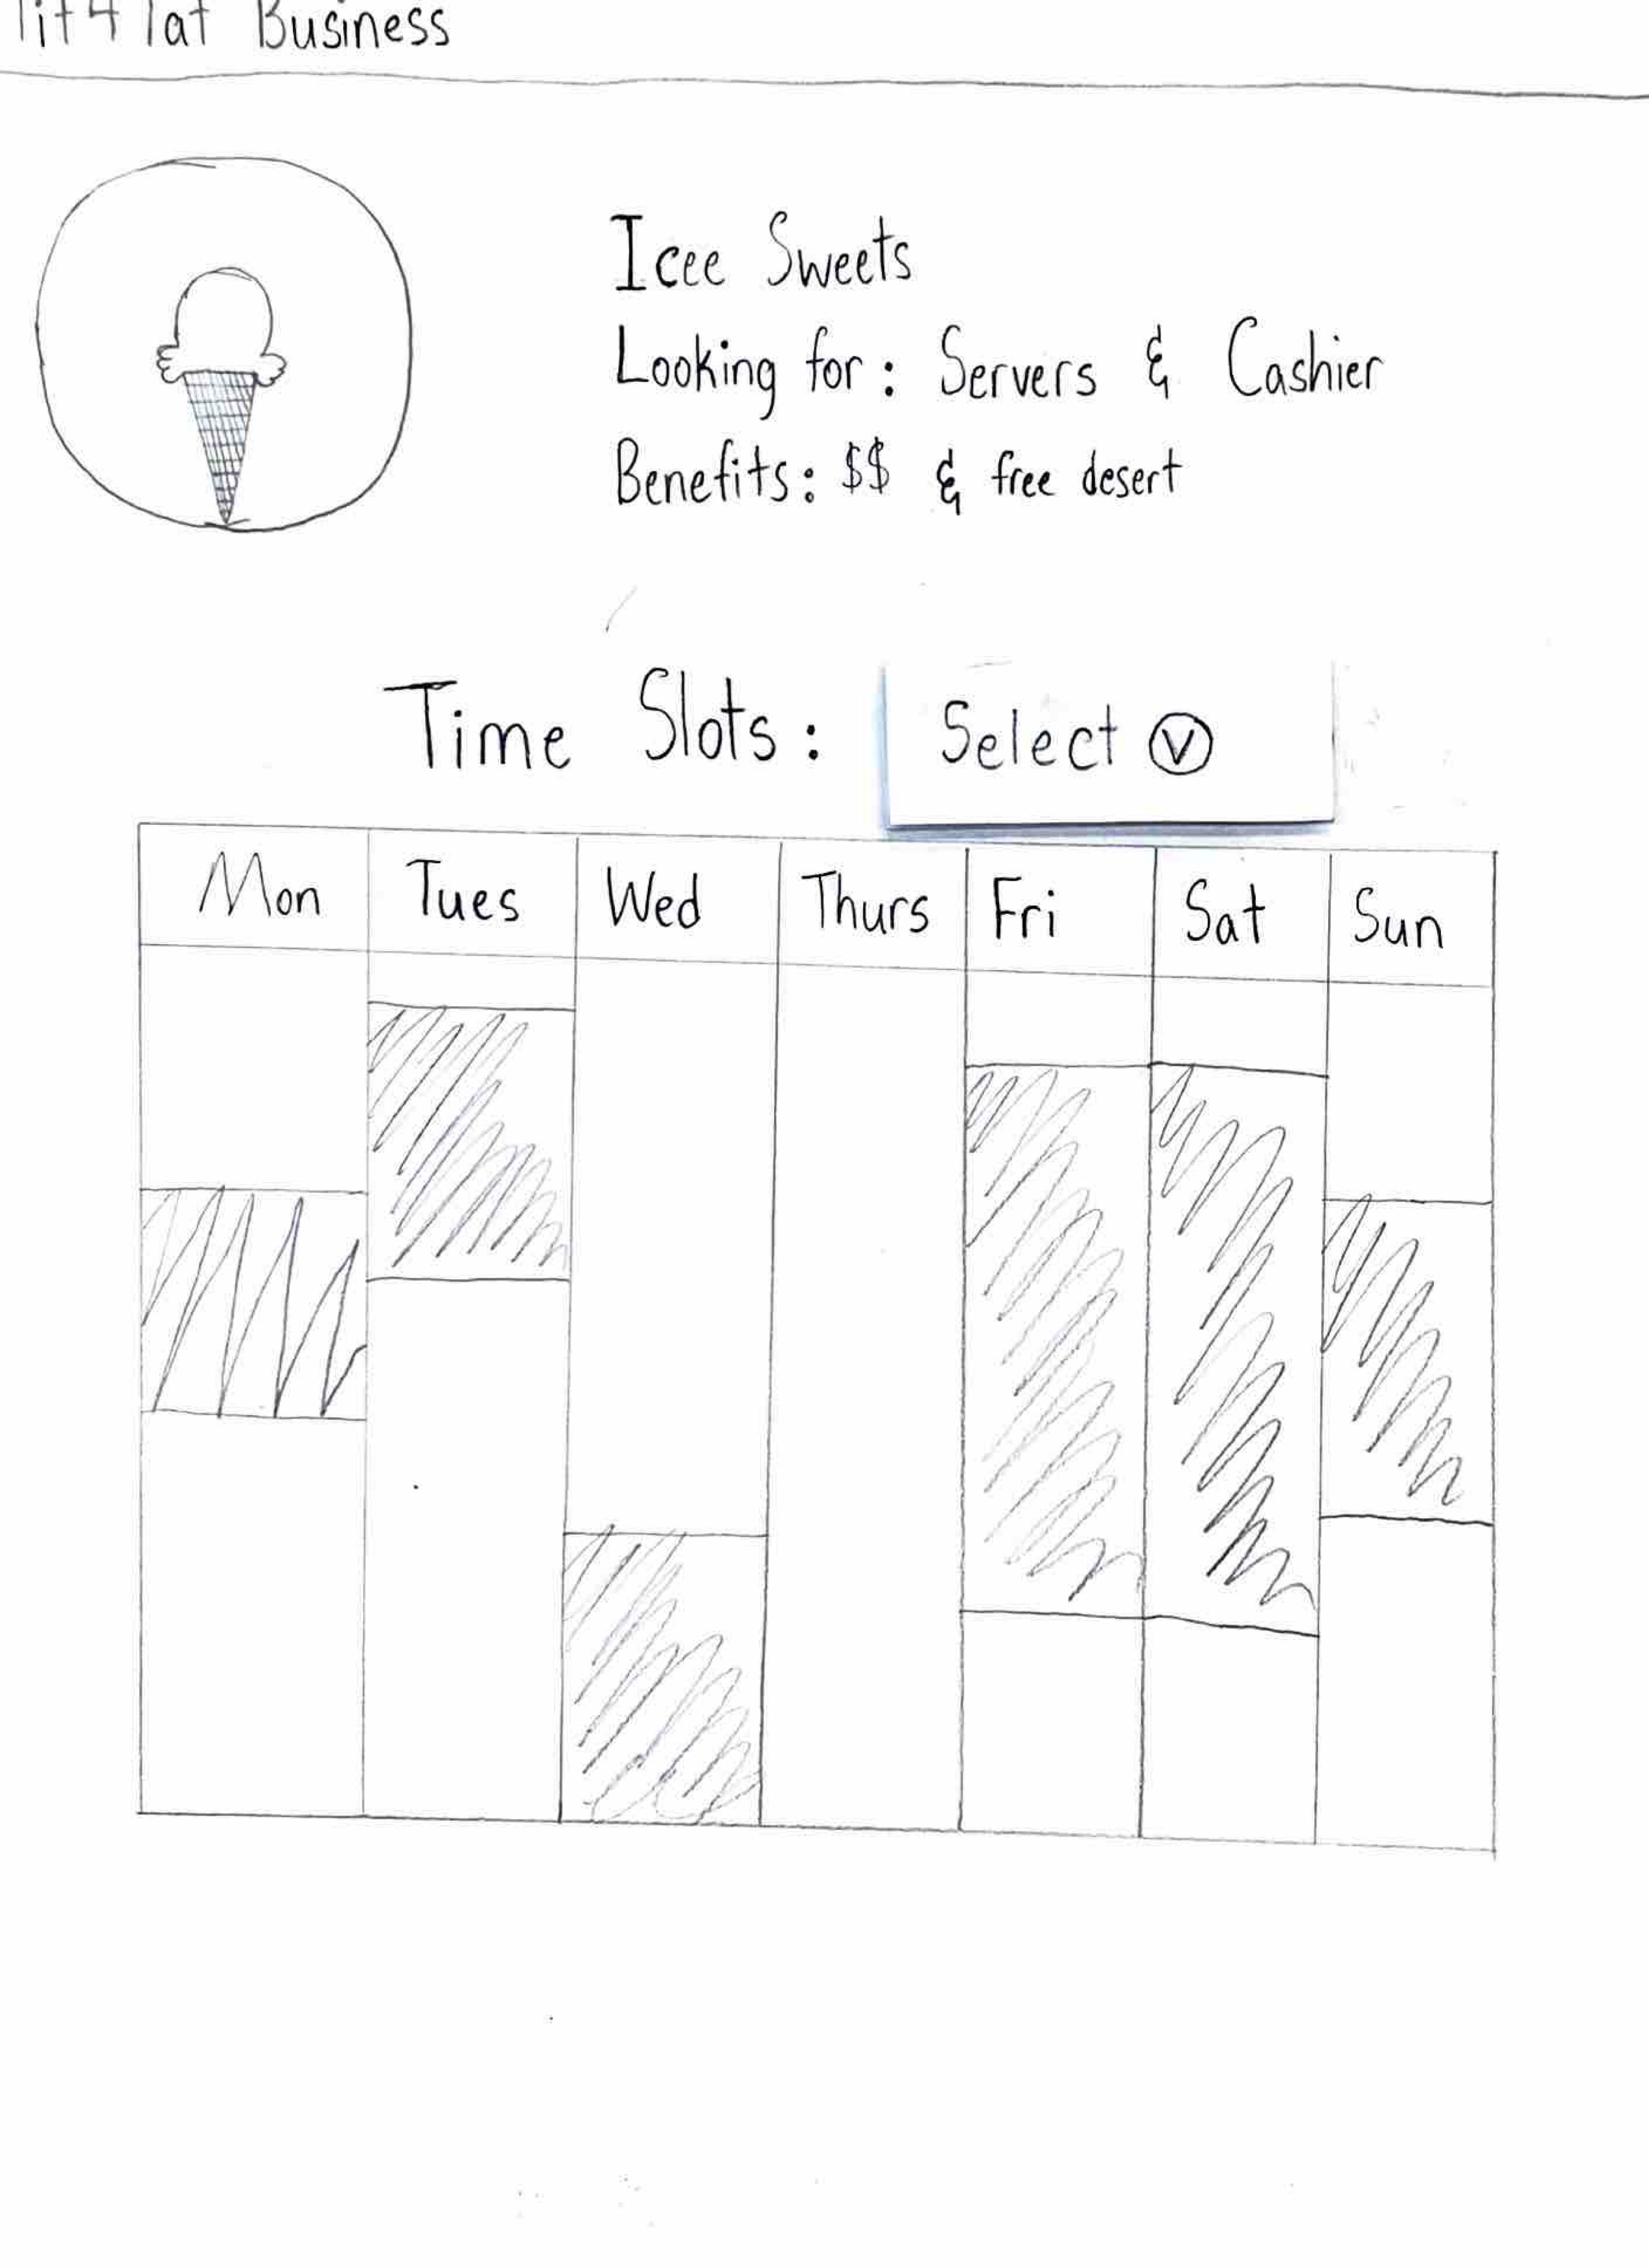 Tit 4 Tat Business
Icee Sweets
Looking for: Servers & Cashier
Benefits: $$ & free desert
Time Slots: Select
Mon Tues Wed Thurs Fri Sat Sun